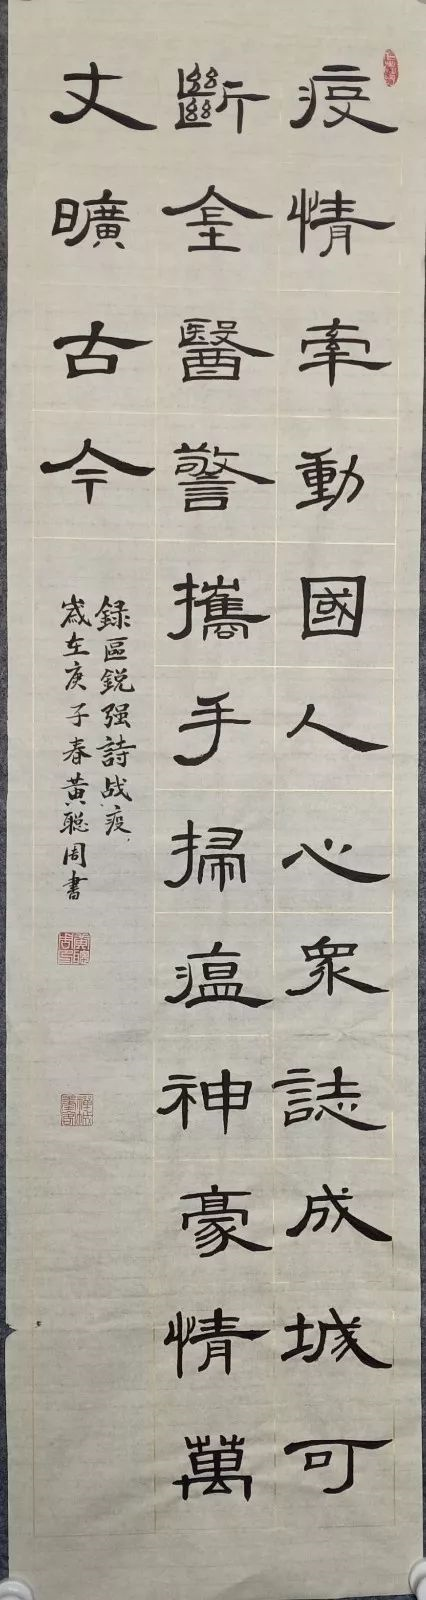 疫情牽動國人心衆誌成城可
斷金醫警攜手掃瘟神豪情萬
丈曠古今
録區鋭强詩战疫
歲在庚子春黃聪周書